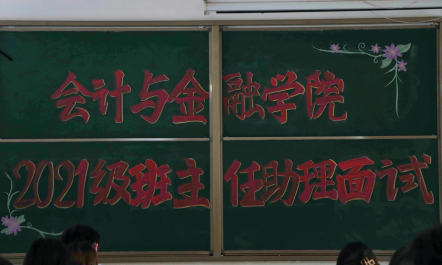 会计与金融学院
2021级班主任助理面试